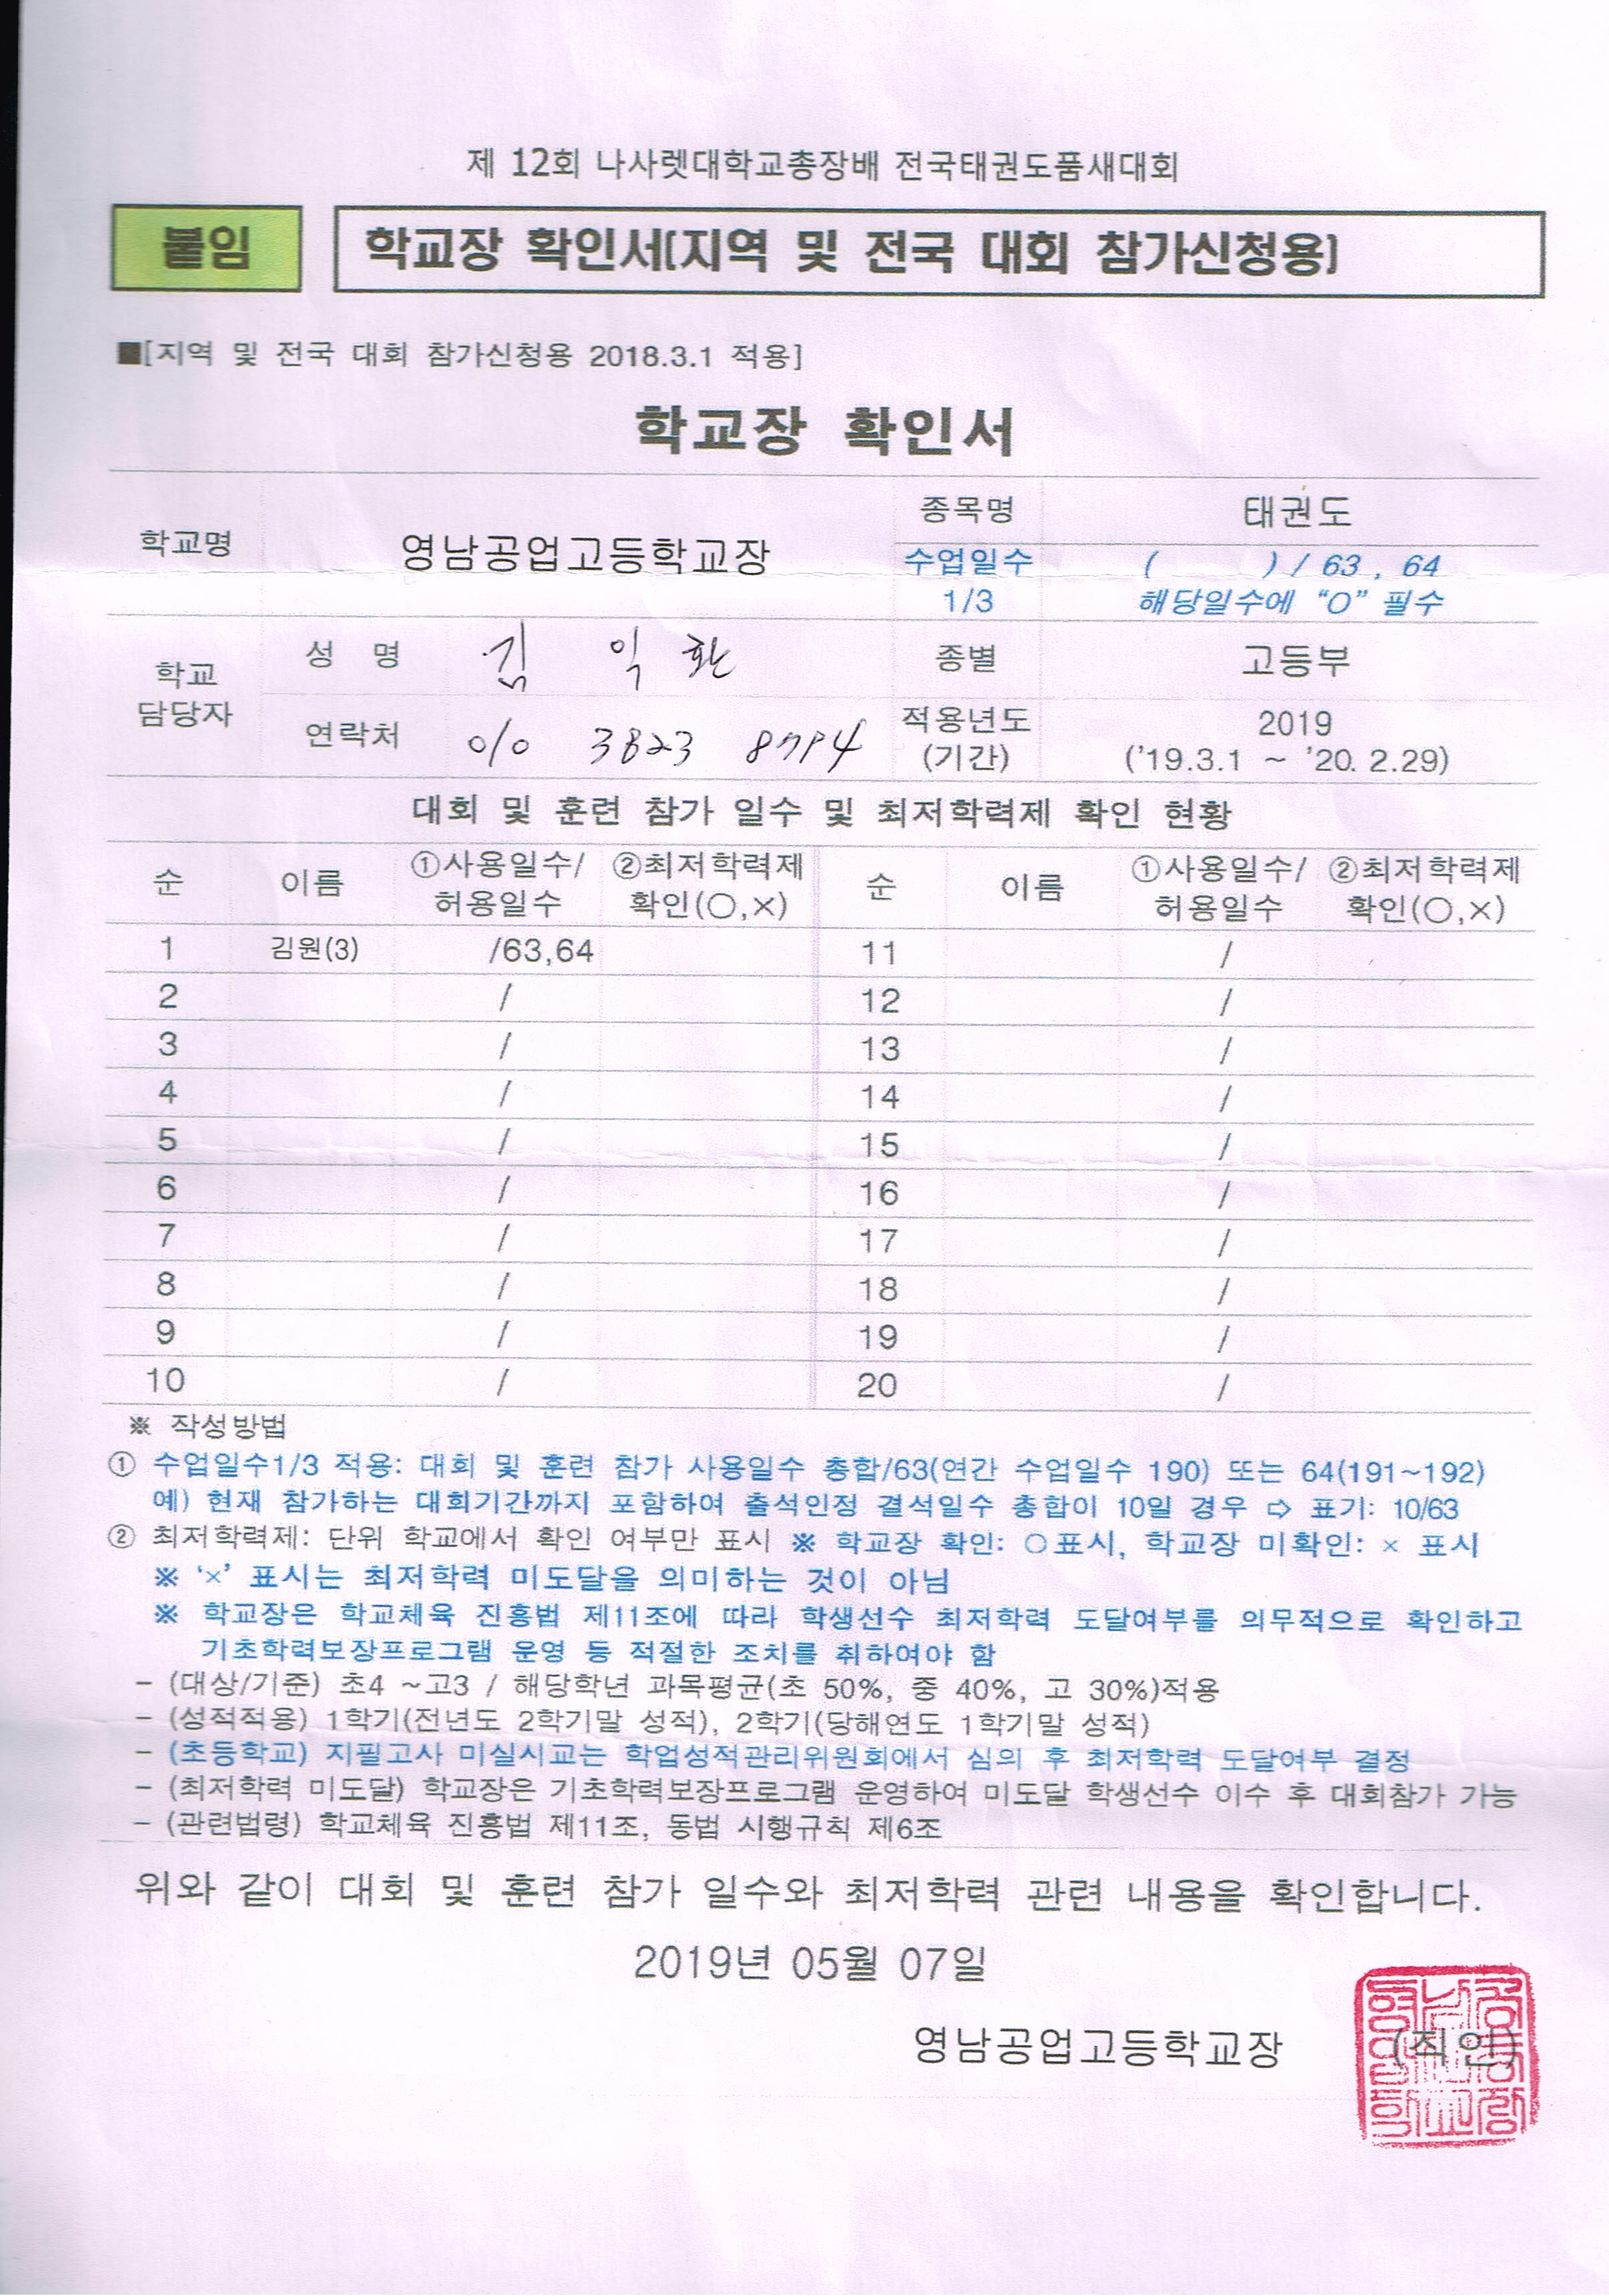 제 12회 나사렛대학교총장배 전국태권도품새대회
붙임
학교장 확인서[지역 및 전국 대회 참가신청용]
■[지역 및 전국 대회 참가신청용 2018.3.1 적용]
학교장 확인서
학교명 영남공업고등학교장 종목명 태권도
수업일수 ( ) / 63 , 64
1/3 해당일수에 “O” 필수
학교 담당자 성 명 김 익 환 종별 고등부
연락처 010 3823 8794 적용년도 2019
(기간) ('19.3.1 ~ '20. 2.29)
대회 및 훈련 참가 일수 및 최저학력제 확인 현황
순 이름 ①사용일수/허용일수 ②최저학력제 확인(○,×) 순 이름 ①사용일수/허용일수 ②최저학력제 확인(○,×)
1 김원(3) /63,64 11 /
2 / 12 /
3 / 13 /
4 / 14 /
5 / 15 /
6 / 16 /
7 / 17 /
8 / 18 /
9 / 19 /
10 / 20 /
※ 작성방법
① 수업일수1/3 적용: 대회 및 훈련 참가 사용일수 총합/63(연간 수업일수 190) 또는 64(191~192)
예) 현재 참가하는 대회기간까지 포함하여 출석인정 결석일수 총합이 10일 경우 ⇨ 표기: 10/63
② 최저학력제: 단위 학교에서 확인 여부만 표시 ※ 학교장 확인: ○표시, 학교장 미확인: × 표시
※ ‘×’ 표시는 최저학력 미도달을 의미하는 것이 아님
※ 학교장은 학교체육 진흥법 제11조에 따라 학생선수 최저학력 도달여부를 의무적으로 확인하고
기초학력보장프로그램 운영 등 적절한 조치를 취하여야 함
- (대상/기준) 초4 ~고3 / 해당학년 과목평균(초 50%, 중 40%, 고 30%)적용
- (성적적용) 1학기(전년도 2학기말 성적), 2학기(당해연도 1학기말 성적)
- (초등학교) 지필고사 미실시교는 학업성적관리위원회에서 심의 후 최저학력 도달여부 결정
- (최저학력 미도달) 학교장은 기초학력보장프로그램 운영하여 미도달 학생선수 이수 후 대회참가 가능
- (관련법령) 학교체육 진흥법 제11조, 동법 시행규칙 제6조
위와 같이 대회 및 훈련 참가 일수와 최저학력 관련 내용을 확인합니다.
2019년 05월 07일
영남공업고등학교장 (직인)